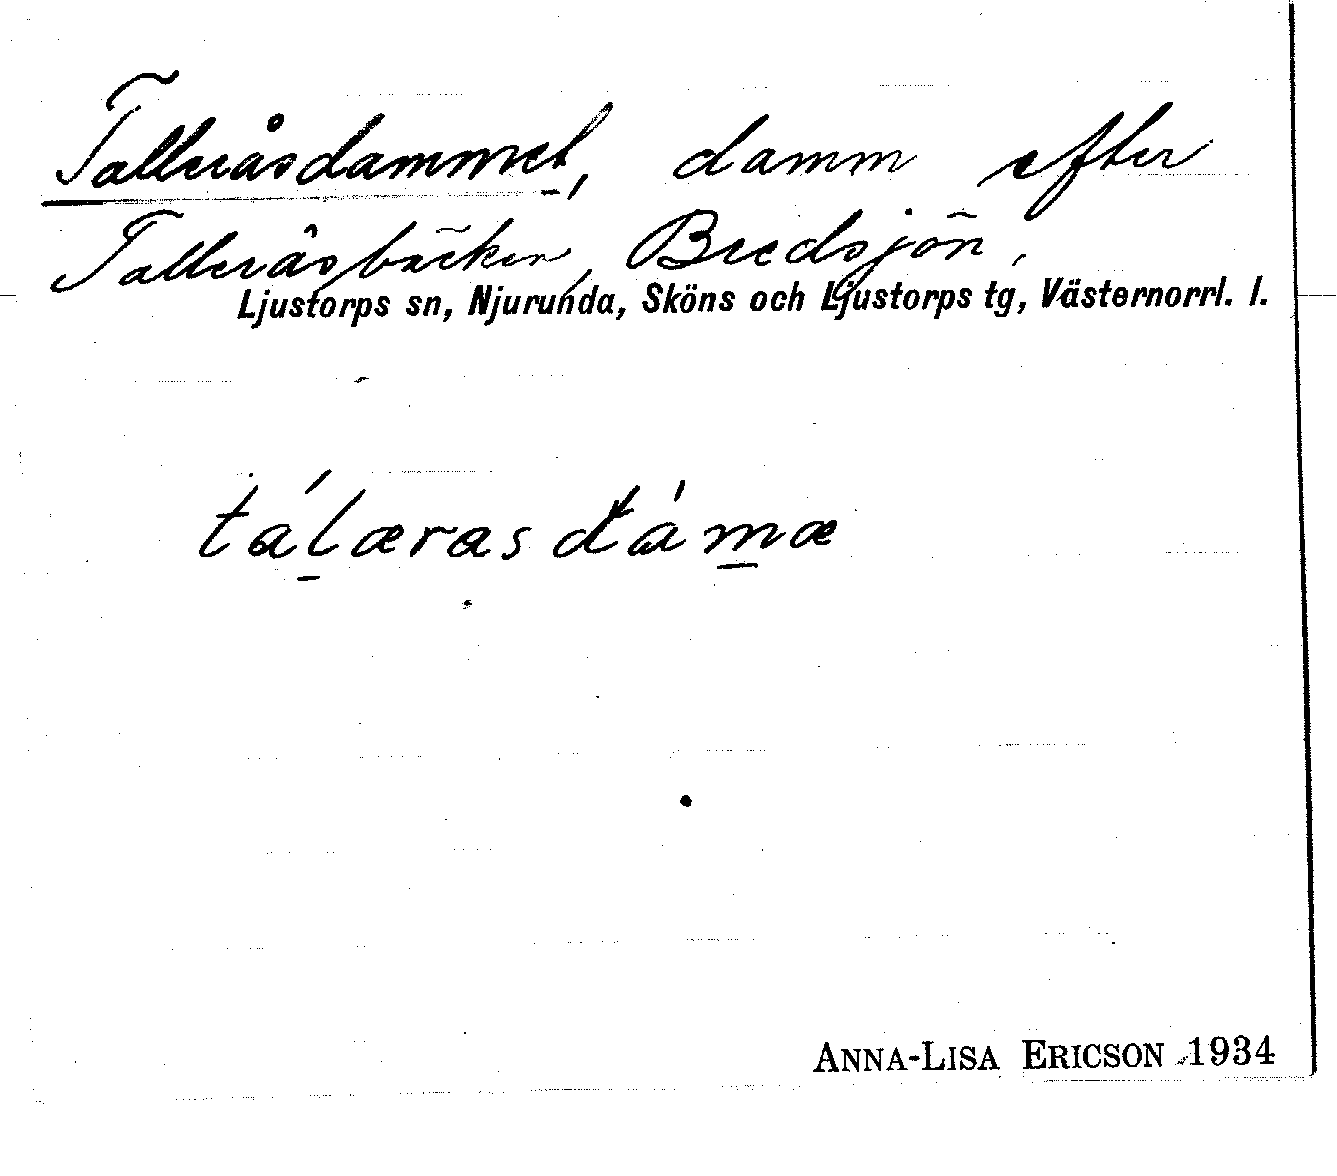 Talleråsdammet, damm efter
Talleråsbäcken, Bredsjön,
Ljustorps sn, Njurunda, Sköns och Ljustorps tg, Västernorrl. l.
tálærasdámæ
ANNA-LISA ERICSON 1934